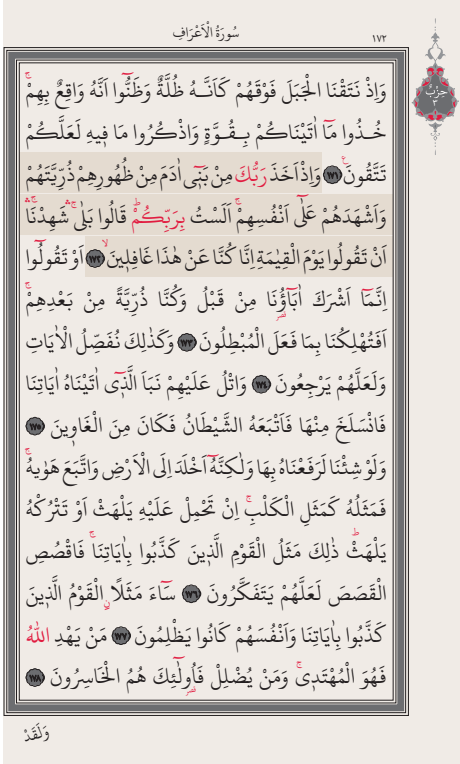 سُورَةُ الْاَعْرَافِ
١٧٢
حِزْبُ
٣
وَاِذْ نَتَقْنَا الْجَبَلَ فَوْقَهُمْ كَاَنَّـهُ ظُلَّةٌ وَظَنُّٓوا اَنَّهُ وَاقِعٌ بِهِمْۚ
خُـذُوا مَٓا اٰتَيْنَاكُمْ بِـقُـوَّةٍ وَاذْكُرُوا مَا فٖيهِ لَعَلَّكُمْ
تَتَّقُونَࣖ ﴿١٧١﴾ وَاِذْ اَخَذَ رَبُّكَ مِنْ بَنٖٓي اٰدَمَ مِنْ ظُهُورِهِمْ ذُرِّيَّتَهُمْ
وَاَشْهَدَهُمْ عَلٰٓى اَنْفُسِهِمْۚ اَلَسْتُ بِرَبِّكُمْۜ قَالُوا بَلٰىۚۛ شَهِدْنَاۚۛ
اَنْ تَقُولُوا يَوْمَ الْقِيٰمَةِ اِنَّا كُنَّا عَنْ هٰذَا غَافِلٖينَۙ ﴿١٧٢﴾ اَوْ تَقُولُٓوا
اِنَّمَٓا اَشْرَكَ اٰبَٓاؤُ۬نَا مِنْ قَبْلُ وَكُنَّا ذُرِّيَّةً مِنْ بَعْدِهِمْۚ
اَفَتُهْلِكُنَا بِمَا فَعَلَ الْمُبْطِلُونَ ﴿١٧٣﴾ وَكَذٰلِكَ نُفَصِّلُ الْاٰيَاتِ
وَلَعَلَّهُمْ يَرْجِعُونَ ﴿١٧٤﴾ وَاتْلُ عَلَيْهِمْ نَبَاَ الَّذٖٓي اٰتَيْنَاهُ اٰيَاتِنَا
فَانْسَلَخَ مِنْهَا فَاَتْبَعَهُ الشَّيْطَانُ فَكَانَ مِنَ الْغَاوٖينَ ﴿١٧٥﴾
وَلَوْ شِئْنَا لَرَفَعْنَاهُ بِهَا وَلٰكِنَّهُٓ اَخْلَدَ اِلَى الْاَرْضِ وَاتَّبَعَ هَوٰيهُۚ
فَمَثَلُهُ كَمَثَلِ الْكَلْبِۚ اِنْ تَحْمِلْ عَلَيْهِ يَلْهَثْ اَوْ تَتْرُكْهُ
يَلْهَثْۜ ذٰلِكَ مَثَلُ الْقَوْمِ الَّذٖينَ كَذَّبُوا بِاٰيَاتِنَاۚ فَاقْصُصِ
الْقَصَصَ لَعَلَّهُمْ يَتَفَكَّرُونَ ﴿١٧٦﴾ سَٓاءَ مَثَلًاۨ الْقَوْمُ الَّذٖينَ
كَذَّبُوا بِاٰيَاتِنَا وَاَنْفُسَهُمْ كَانُوا يَظْلِمُونَ ﴿١٧٧﴾ مَنْ يَهْدِ اللّٰهُ
فَهُوَ الْمُهْتَدٖيۚ وَمَنْ يُضْلِلْ فَاُو۬لٰٓئِكَ هُمُ الْخَاسِرُونَ ﴿١٧٨﴾
وَلَقَدْ